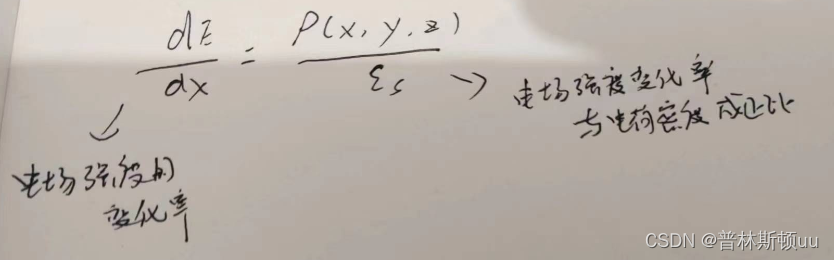 dE/dx = ρ(x,y,z)/εs
电场强度变化率
与电荷密度成正比
电场强度的
变化率
CSDN @普林斯顿uu